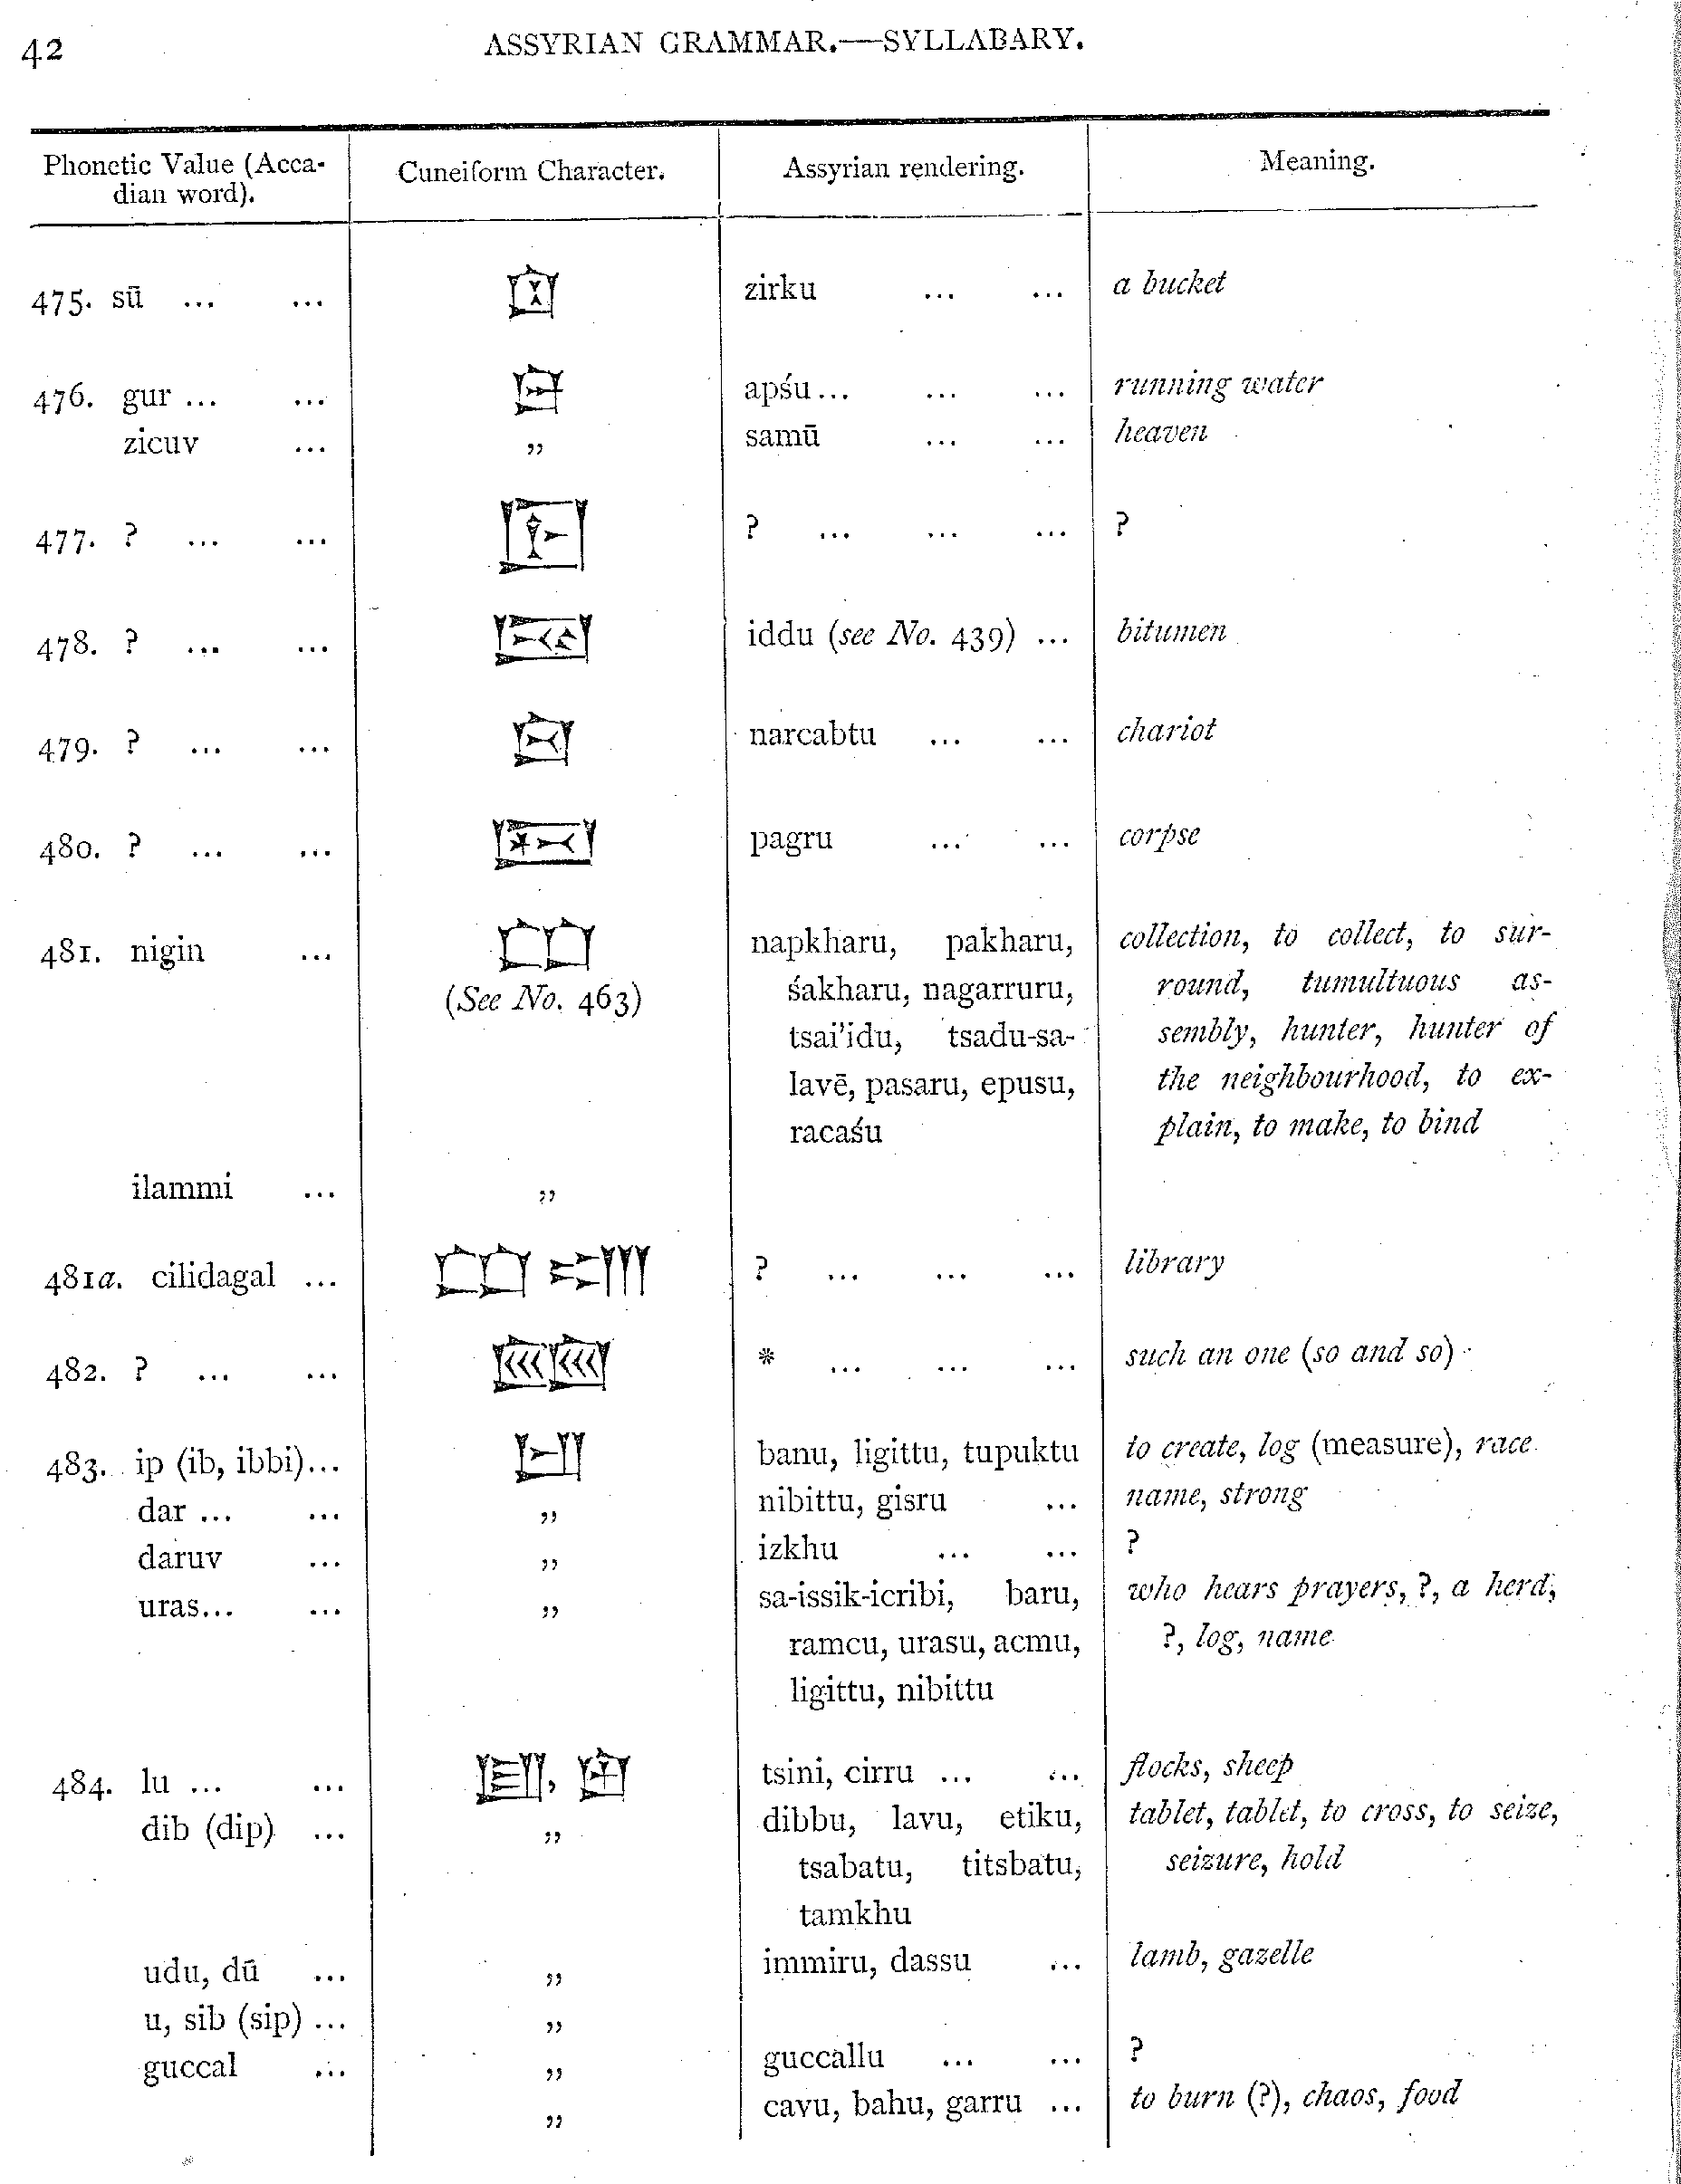 42
ASSYRIAN GRAMMAR.—SYLLABARY.
Phonetic Value (Acca-
dian word).
Cuneiform Character.
Assyrian rendering.
Meaning.
475. sū ... ... zirku ... ... a bucket
476. gur ... ... apśu ... ... ... running water
zicuv ... ,, samū ... ... heaven
477. ? ... ... ? ... ... ... ?
478. ? ... ... iddu (see No. 439) ... bitumen
479. ? ... ... narcabtu ... ... chariot
480. ? ... ... pagru ... ... corpse
481. nigin ... napkharu, pakharu, collection, to collect, to sur-
(See No. 463) śakharu, nagarruru, round, tumultuous as-
tsai'idu, tsadu-sa- sembly, hunter, hunter of
lavē, pasaru, epusu, the neighbourhood, to ex-
racaśu plain, to make, to bind
ilammi ... ,,
481a. cilidagal ... ? ... ... ... library
482. ? ... ... * ... ... ... such an one (so and so)
483. ip (ib, ibbi)... banu, ligittu, tupuktu to create, log (measure), race
dar ... ... ,, nibittu, gisru ... name, strong
daruv ... ,, izkhu ... ... ?
uras... ... ,, sa-issik-icribi, baru, who hears prayers, ?, a herd,
ramcu, urasu, acmu, ?, log, name
ligittu, nibittu
484. lu ... ... , tsini, cirru ... ... flocks, sheep
dib (dip) ... ,, dibbu, lavu, etiku, tablet, tablet, to cross, to seize,
tsabatu, titsbatu, seizure, hold
tamkhu
udu, dū ... ,, immiru, dassu ... lamb, gazelle
u, sib (sip) ... ,,
guccal ... ,, guccallu ... ... ?
,, cavu, bahu, garru ... to burn (?), chaos, food